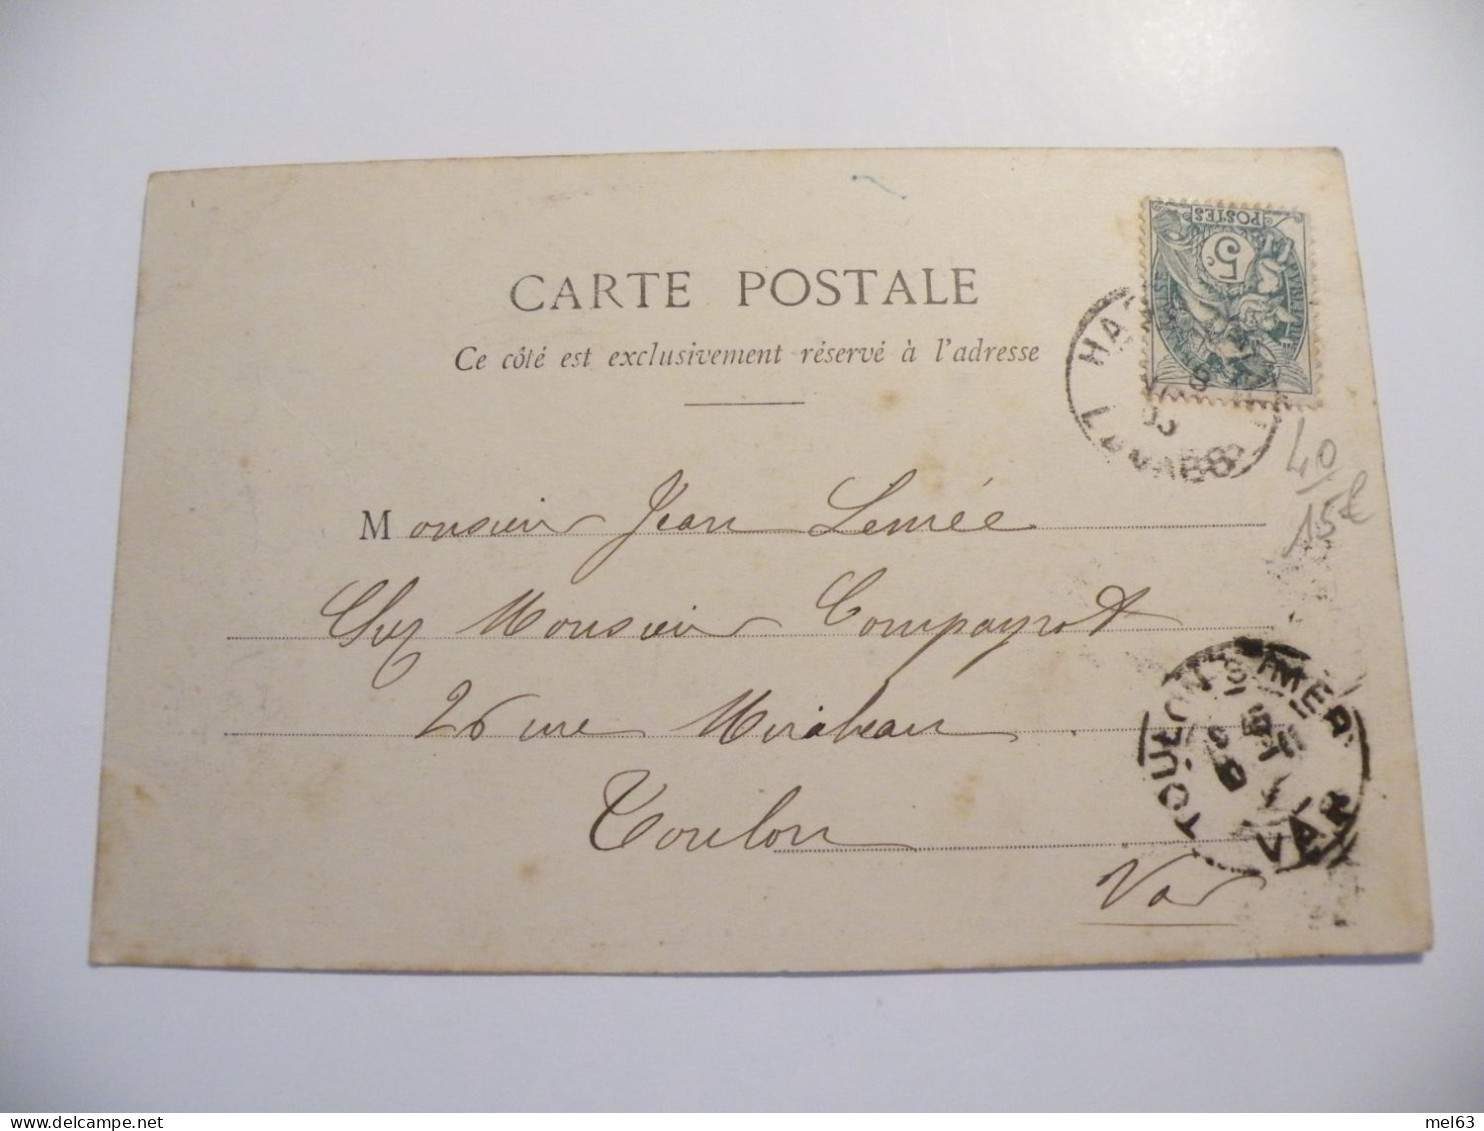 CARTE POSTALE
Ce côté est exclusivement réservé à l'adresse
POSTES
5c
LANDES
40
15€
Monsieur Jean Lemée
Chez Monsieur Compayrot
26 rue Mirabeau
Toulon
Var
TOULON-S-MER
VAR
mel63